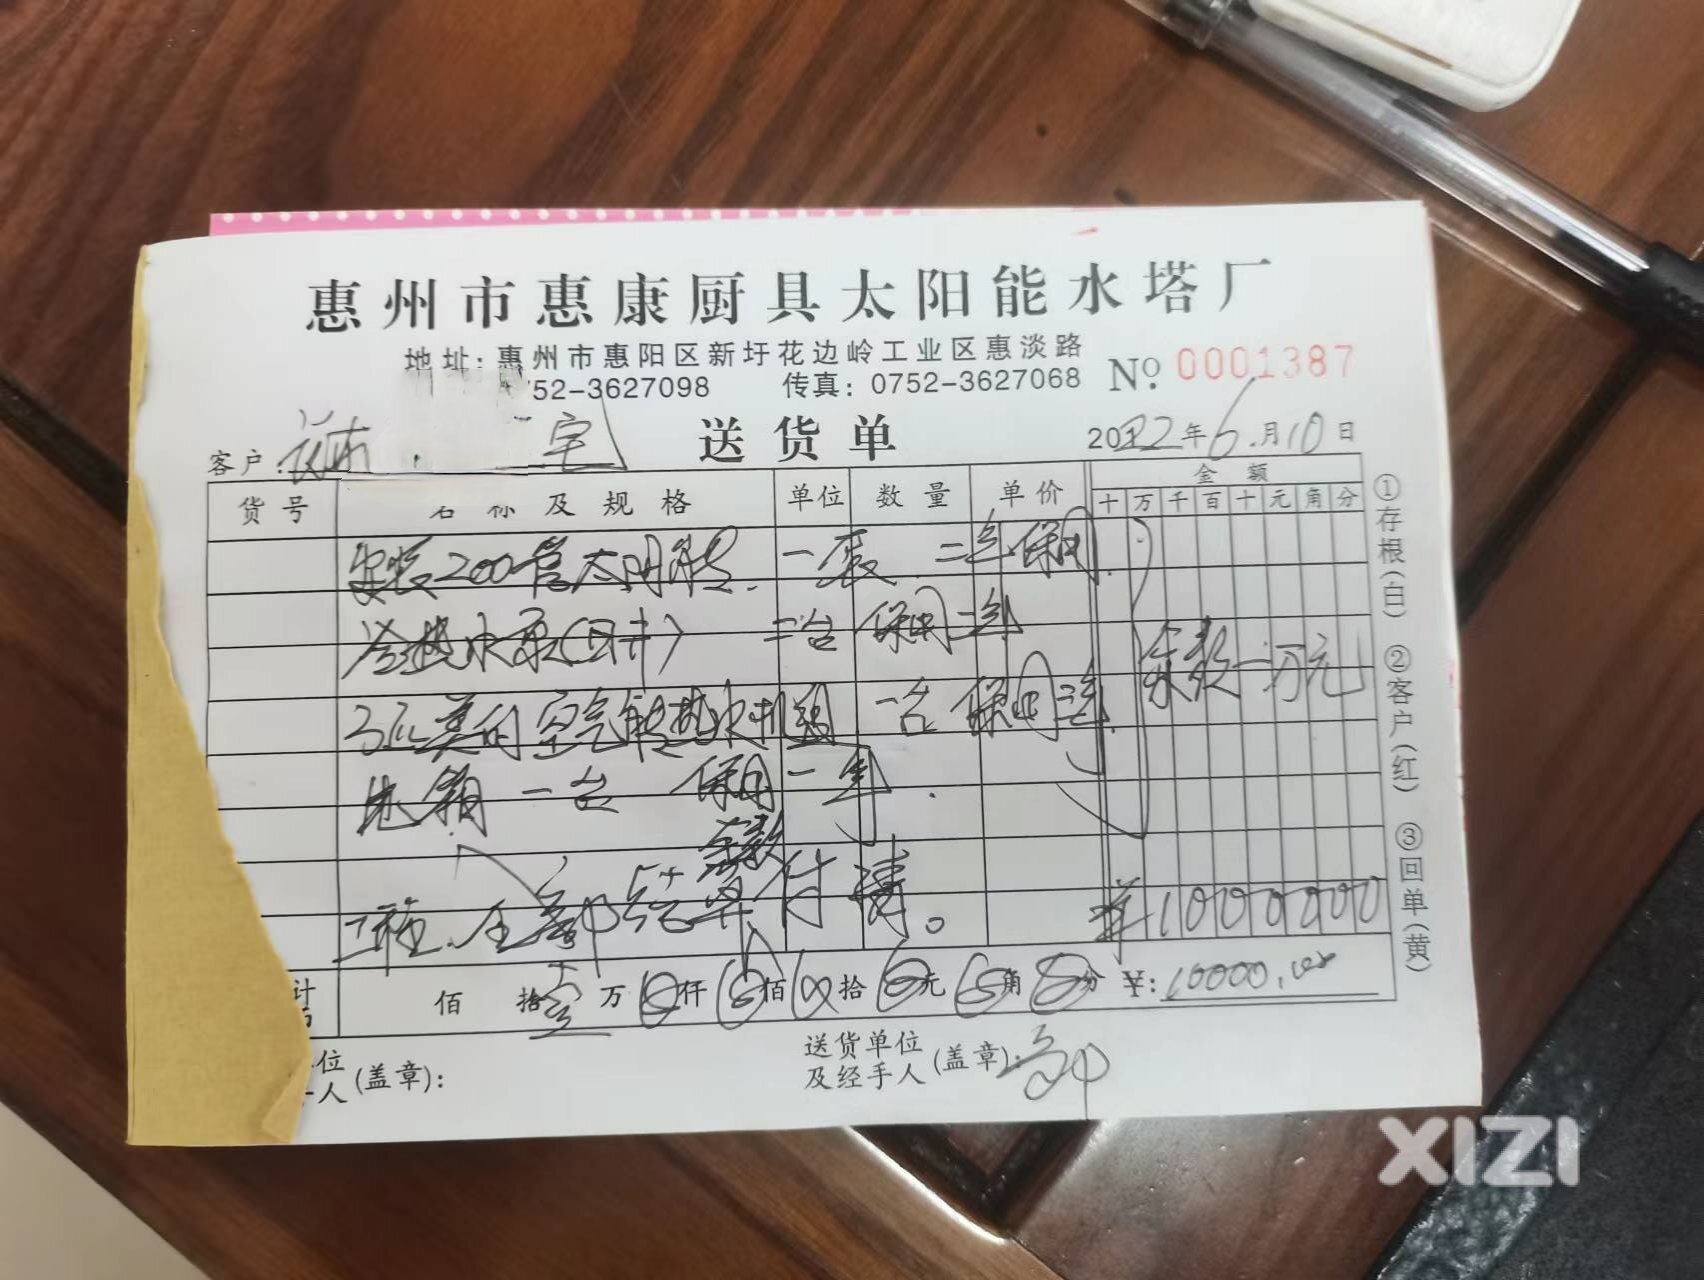 惠州市惠康厨具太阳能水塔厂
地址:惠州市惠阳区新圩花边岭工业区惠淡路
52-3627098 传真:0752-3627068 № 0001387
客户: 宅 送货单 2022年6月10日
货号 名称及规格 单位 数量 单价 金额
十万千百十元角分
安装200管太阳能 一套 二年保用
冷热水泵(日井) 二台 保用二年
余款一万元
3匹美的空气能热水机 一台 保用三年
电箱一台 保用一年.
余款
工程全部结算付清。 ¥1000000
计 佰 拾壹万0仟0佰0拾0元0角0分 ¥:10000.00
位 送货单位
人(盖章): 及经手人(盖章):
①存根(白) ②客户(红) ③回单(黄)
XIZI